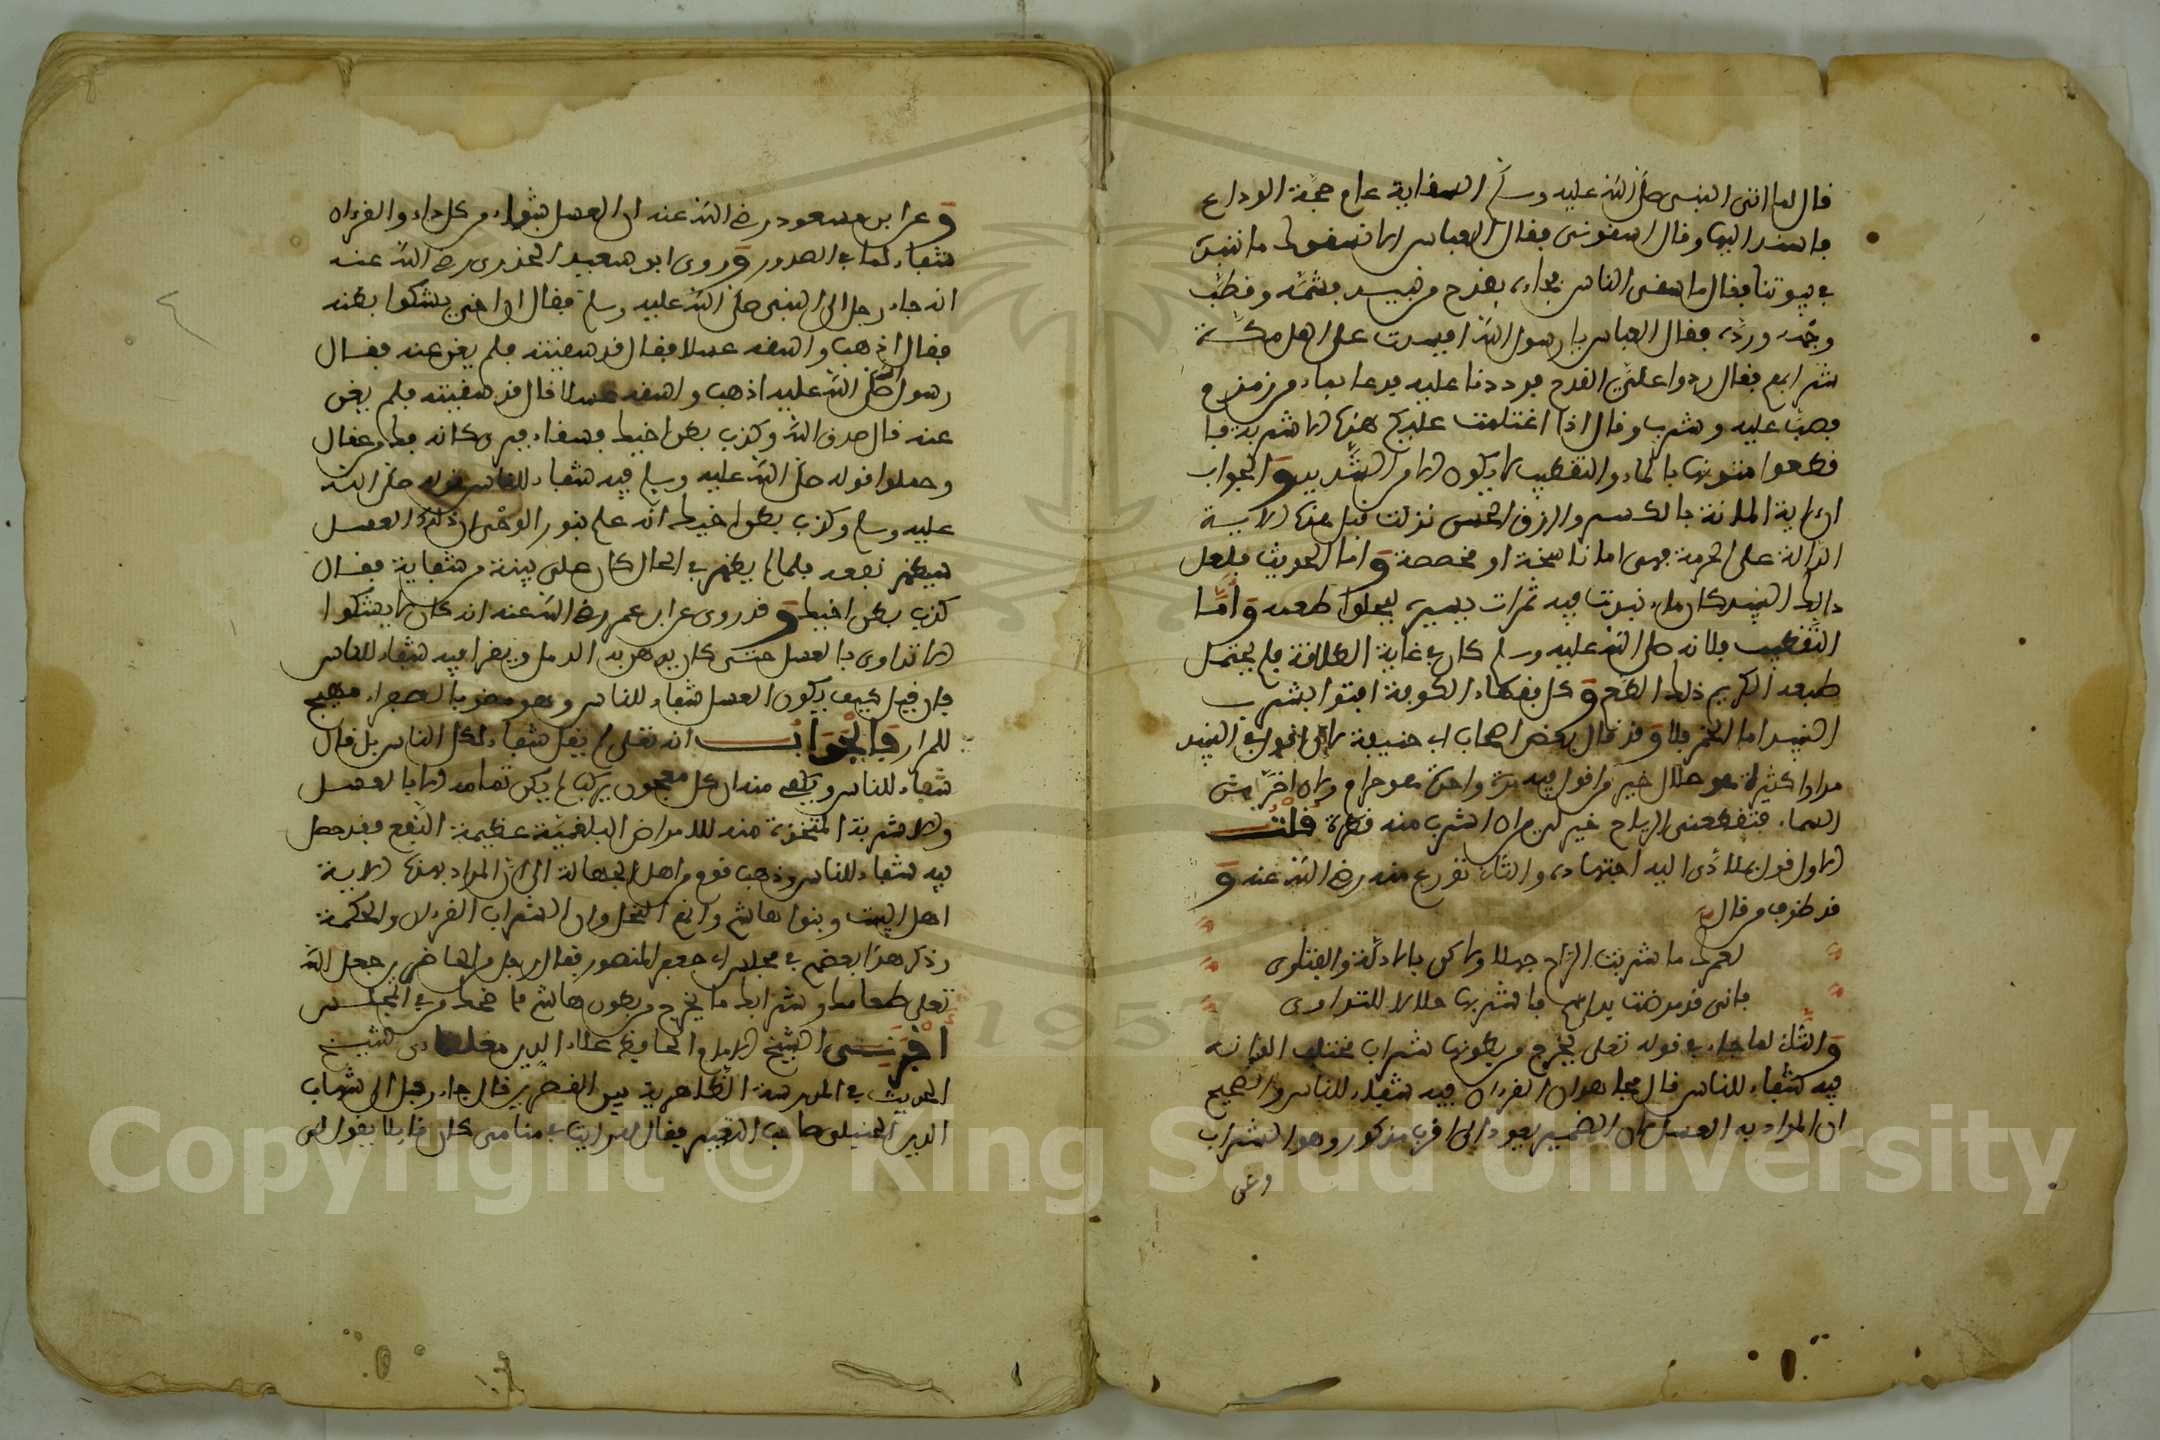 قال لما اتى النبي صلى الله عليه وسلم السقاية عام حجة الوداع
فاستند اليها وقال اسقوني فقال العباس الا نسقيك ما ننبذ
في بيوتنا فقال ما يسقى الناس فجاءه بقدح من نبيذ فشمه وقطب
وجهه ورده فقال العباس يا رسول الله افسدت على اهل مكة
شرابهم فقال ردوا علي القدح فرددنا عليه فدعا بماء من زمزم
فصب عليه وشرب وقال اذا اغتلمت عليكم هذه الاشربة فا
قطعوا متونها بالماء والتقطيب لا يكون الا من الشديد والجواب
ان الاية الملانة بالكسر والرزق الحسن نزلت قبل هذه الاية
الدالة على الحرمة فهي اما ناسخة او مخصصة واما الحديث فلعل
ذلك النبيذ كان ماء نبذت فيه تمرات يسيرة ليحلوا طعمه واما
التقطيب فلانه صلى الله عليه وسلم كان في غاية اللطافة فلم يحتمل
طبعه الكريم ذلك الطعم وكل فقهاء الكوفة افتوا بشرب
النبيذ اما الخمر فلا وقد قال بعض اصحاب ابي حنيفة لان اقول في النبيذ
مرارا كثيرة هو حلال خير من اقول فيه مرة واحدة هو حرام ولان اخر من
السماء فتقطعني الرياح خير لي من ان اشرب منه قطرة قلت
الاول قول بما ادى اليه اجتهاده والثاني تورع منه رضي الله عنه و
قد ظرف من قال
لعمرك ما شربت الراح جهلا ولكن بالادلة والفتاوى
فاني قد مرضت بداء هم فاشربها حلالا للتداوي
والثالث لما جاء في قوله تعالى يخرج من بطونها شراب مختلف الوانه
فيه شفاء للناس قال مجاهد ان القران فيه شفاء للناس والصحيح
ان المراد به العسل لان الضمير يعود الى اقرب مذكور وهو الشراب
وعن
وعن ابن مسعود رضي الله عنه ان العسل شفاء من كل داء والقران
شفاء لما في الصدور وروى ابو سعيد الخدري رضي الله عنه
انه جاء رجل الى النبي صلى الله عليه وسلم فقال ان اخي يشكوا بطنه
فقال اذهب واسقه عسلا فقال قد سقيته فلم يغن عنه فقال
رسول صلى الله عليه اذهب واسقه عسلا قال قد سقيته فلم يغن
عنه قال صدق الله وكذب بطن اخيك فسقاه فبرئ كانه نشط من عقال
وحملوا قوله صلى الله عليه وسلم فيه شفاء للناس قوله صلى الله
عليه وسلم وكذب بطن اخيك انه علم بنور الوحي ان ذلك العسل
سيظهر نفعه فلما لم يظهر في الحال كان على بينة من شفاية فقال
كذب بطن اخيك وقد روى عن ابن عمر رضي الله عنه انه كان لا يشكوا
الا تداوى بالعسل حتى كان يدهن به الدمل ويقرا فيه شفاء للناس
فان قيل كيف يكون العسل شفاء للناس وهو مضر بالصفراء مهيج
للمرار فالجواب انه تعالى لم يقل شفاء لكل الناس بل قال
شفاء للناس ويكفي منه ان كل معجون يركب لم يكن تمامه الا بالعسل
والاشربة المتخذة منه للامراض البلغمية عظيمة النفع فقد حصل
فيه شفاء للناس وذهب قوم من اهل الجهالة الى ان المراد بهذه الاية
اهل البيت وبنوا هاشم وانهم النحل وان الشراب القران والحكمة
وذكر هذا بعضهم في مجلس ابي جعفر المنصور فقال رجل من الحاضرين جعل الله
تعلى طعامك وشرابك ما يخرج من بطون هاشم فاضحك من في المجلس
اخبرني الشيخ الامام الحافظ علاء الدين مغلطاي شيخ
الحديث في المدرسة الظاهرية بين القصرين قال جاء رجل الى شهاب
الدين الحنبلي صاحب التعبير فقال له رايت في منامي كان قايلا يقول لي